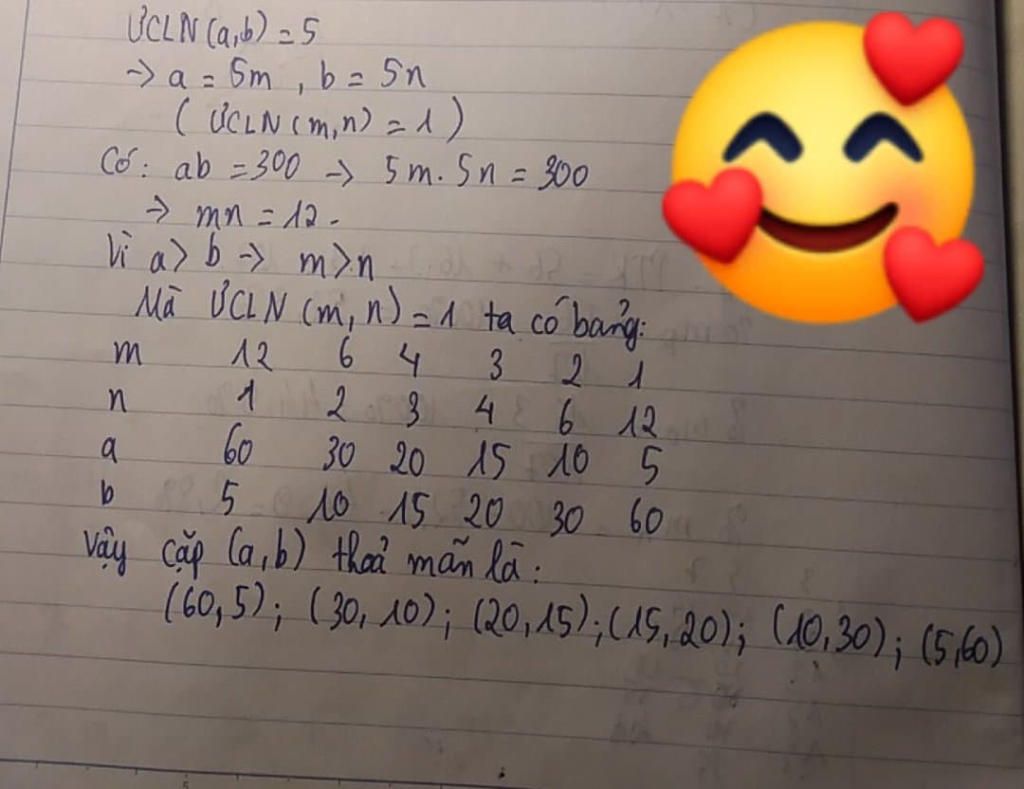 ƯCLN(a,b) = 5
→ a = 5m , b = 5n
( ƯCLN(m,n) = 1 )
Có: ab = 300 → 5m. 5n = 300
→ mn = 12.
Vì a > b → m > n
Mà ƯCLN (m, n) = 1 ta có bảng:
m 12 6 4 3 2 1
n 1 2 3 4 6 12
a 60 30 20 15 10 5
b 5 10 15 20 30 60
Vậy cặp (a,b) thoả mãn là:
(60,5); (30, 10); (20,15); (15,20); (10,30); (5,60)